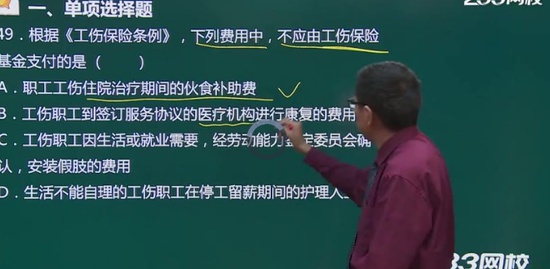 一、单项选择题
233网校
49．根据《工伤保险条例》，下列费用中，不应由工伤保险
基金支付的是（ ）
A．职工工伤住院治疗期间的伙食补助费
B．工伤职工到签订服务协议的医疗机构进行康复的费用
C．工伤职工因生活或就业需要，经劳动能力鉴定委员会确
认，安装假肢的费用
D．生活不能自理的工伤职工在停工留薪期间的护理人
33网校